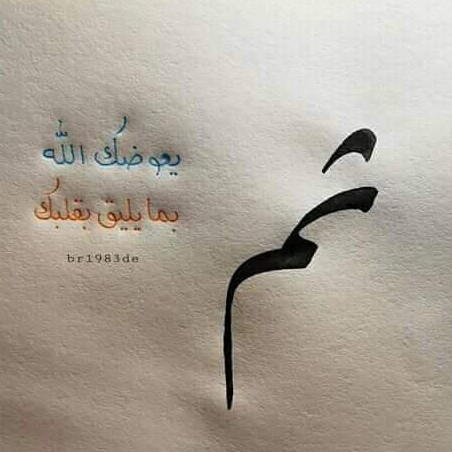 ثم
يعوضك الله
بما يليق بقلبك
br1983de